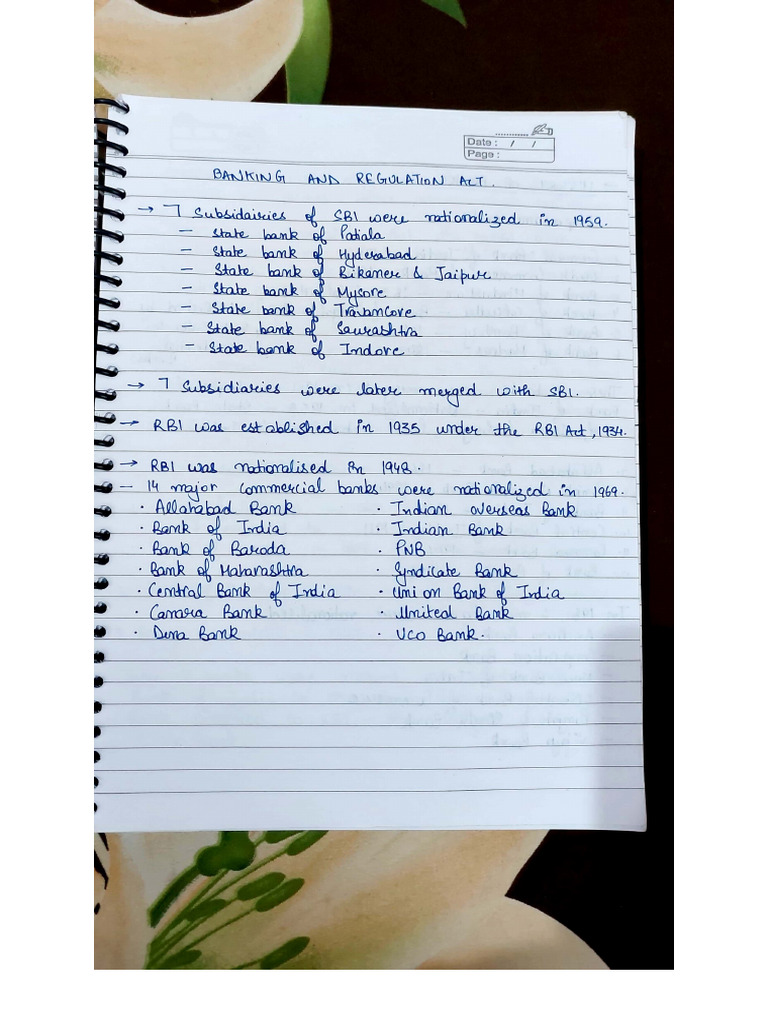 Date : / /
Page :
BANKING AND REGULATION ACT.
→ 7 Subsidairies of SBI were nationalized in 1959.
– State bank of Patiala
– State bank of Hyderabad
– State bank of Bikaner & Jaipur
– State bank of Mysore
– State bank of Travancore
– State bank of Saurashtra
– State bank of Indore
→ 7 Subsidiaries were later merged with SBI.
→ RBI was established in 1935 under the RBI Act, 1934.
→ RBI was nationalised in 1948.
– 14 major commercial banks were nationalized in 1969.
· Allahabad Bank · Indian overseas Bank
· Bank of India · Indian Bank
· Bank of Baroda · PNB
· Bank of Maharashtra · Syndicate Bank
· Central Bank of India · Union Bank of India
· Canara Bank · United Bank
· Dena Bank · UCO Bank.